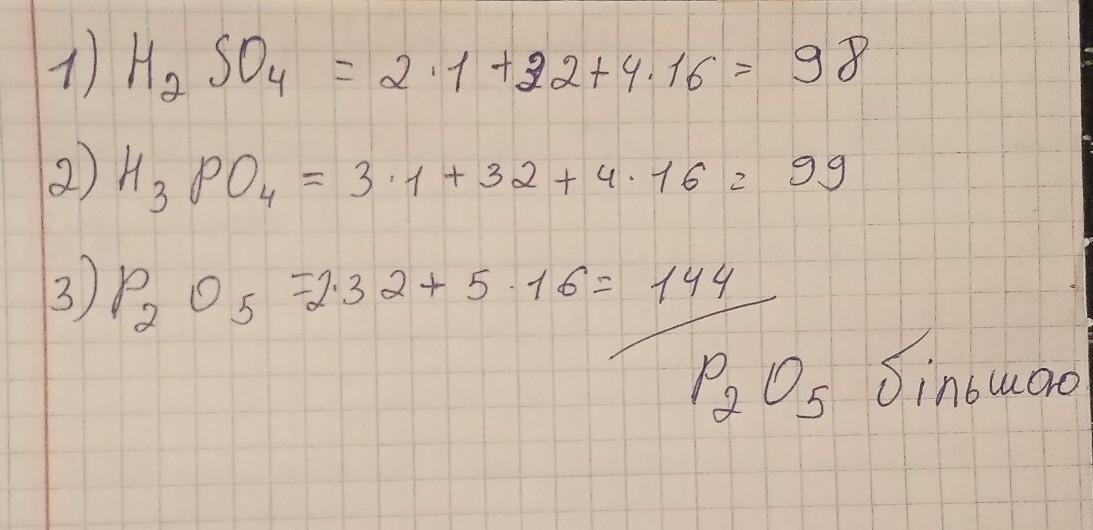 1) H₂SO₄ = 2·1+32+4·16= 98
2) H₃PO₄ = 3·1+32+4·16= 99
3) P₂O₅ =2·32+5·16= 144
P₂O₅ більшою